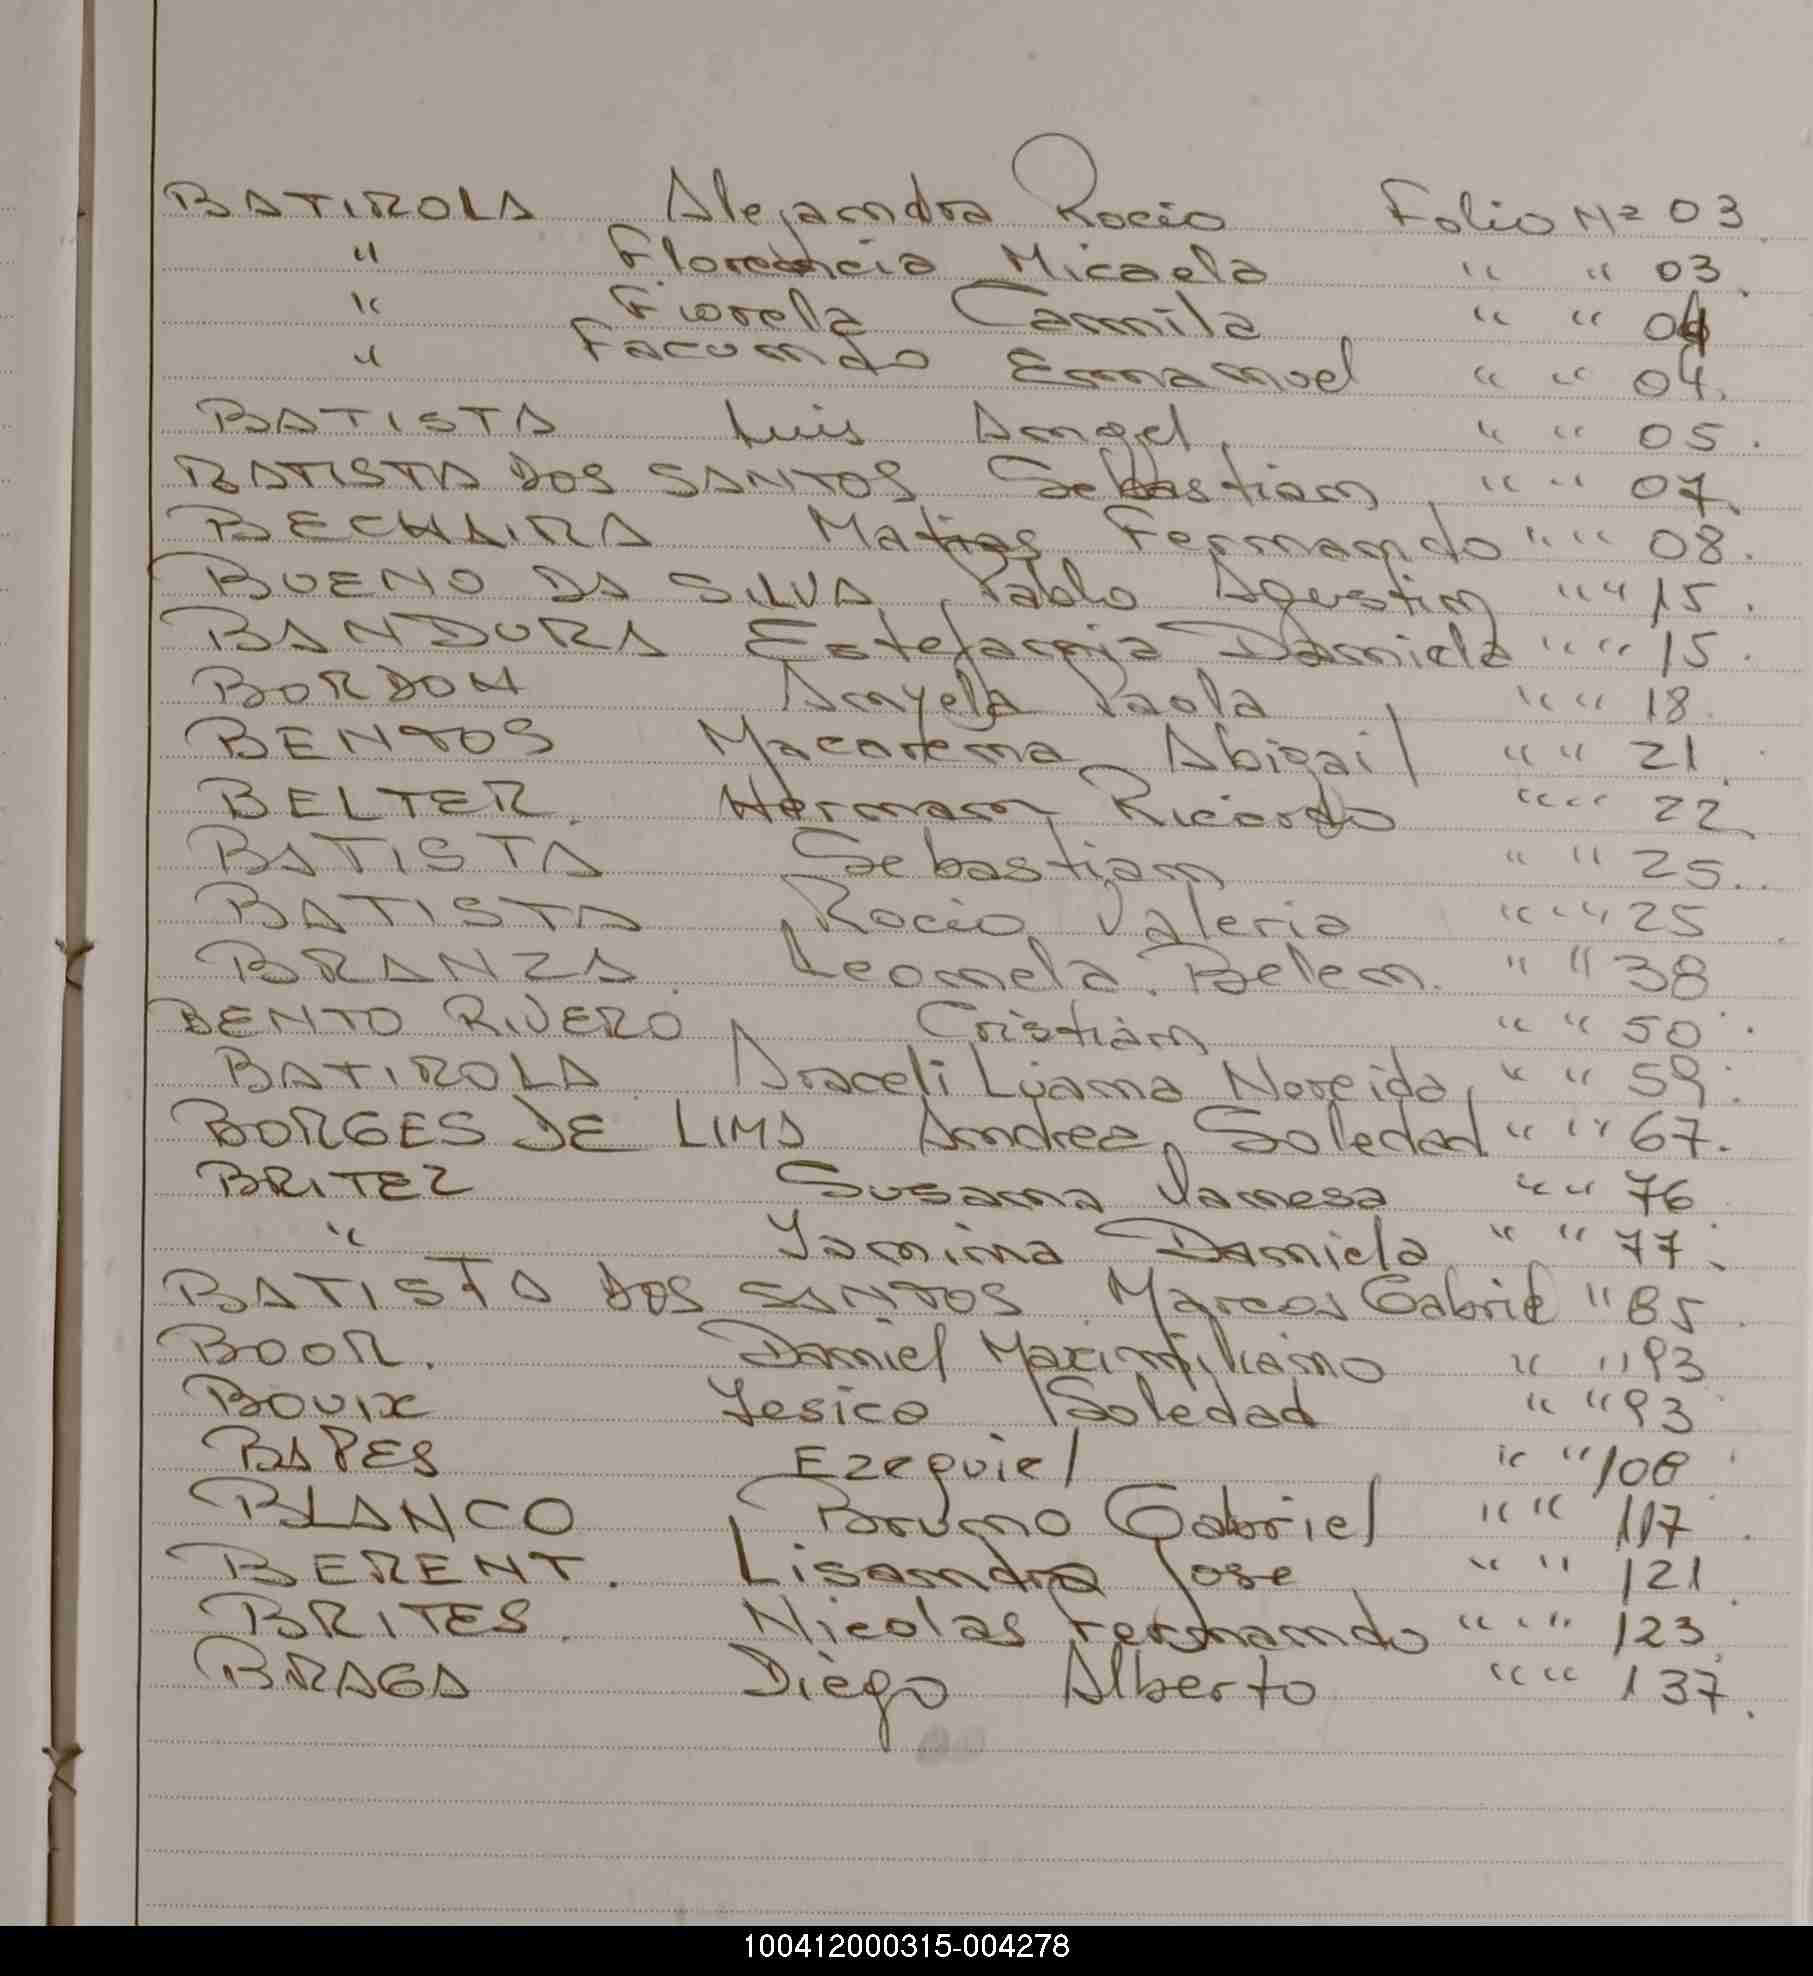 BATIROLA Alejandra Rocio Folio Nº 03
" Florencia Micaela " " 03.
" Fiorela Camila " " 04
" Facundo Emmanuel " " 04.
BATISTA Luis Angel. " " 05.
BATISTA DOS SANTOS Sebastian " " 07.
BECHAIRA Matias Fernando " " 08.
BUENO DA SILVA Pablo Agustin " " 15.
BANDURA Estefania Daniela " " 15.
BORDON Anyela Paola " " 18
BENTOS Macarena Abigail " " 21.
BELTER. Herman Ricardo " " 22
BATISTA Sebastian " " 25.
BATISTA Rocio Valeria " " 25
BRANZA. Leonela. Belen. " " 38
BENTO RIVERO Cristian " " 50.
BATIROLA. Araceli Luana Nereida " " 59.
BORGES DE LIMA Andrea Soledad " " 67.
BRITEZ Susana Vanesa " " 76
" Yamina Daniela " " 77.
BATISTA DOS SANTOS Marcos Gabriel " 85
BOOR. Daniel Maximiliano " " 93
BOUIX Yesica Soledad " " 93
BAPES Ezequiel " " 108
BLANCO Bruno Gabriel " " 117.
BERENT. Lisandro Jose " " 121
BRITES. Nicolas Fernando " " 123
BRAGA Diego Alberto " " 137.
100412000315-004278